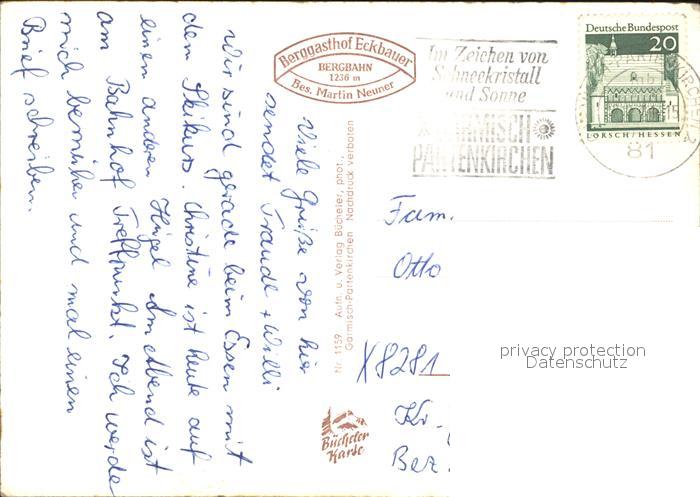 Viele Grüße von hier
sendet Traudl + Willi
Wir sind gerade beim Essen mit
dem Skikurs. Christine ist heute auf
einem anderen Hügel. Am Abend ist
am Bahnhof Treffpunkt. Ich werde
mich bemühen und mal einen
Brief schreiben.
Berggasthof Eckbauer
BERGBAHN
1236 m
Bes. Martin Neuner
Nr. 1159 Aufn. u. Verlag Bücheler, phot.,
Garmisch-Partenkirchen Nachdruck verboten
Bücheler
Karte
Im Zeichen von
Schneekristall
und Sonne
GARMISCH-
PARTENKIRCHEN
Deutsche Bundespost
20
LORSCH/HESSEN
81
Fam.
Otto
X8281
Kr.
Bez.
privacy protection
Datenschutz